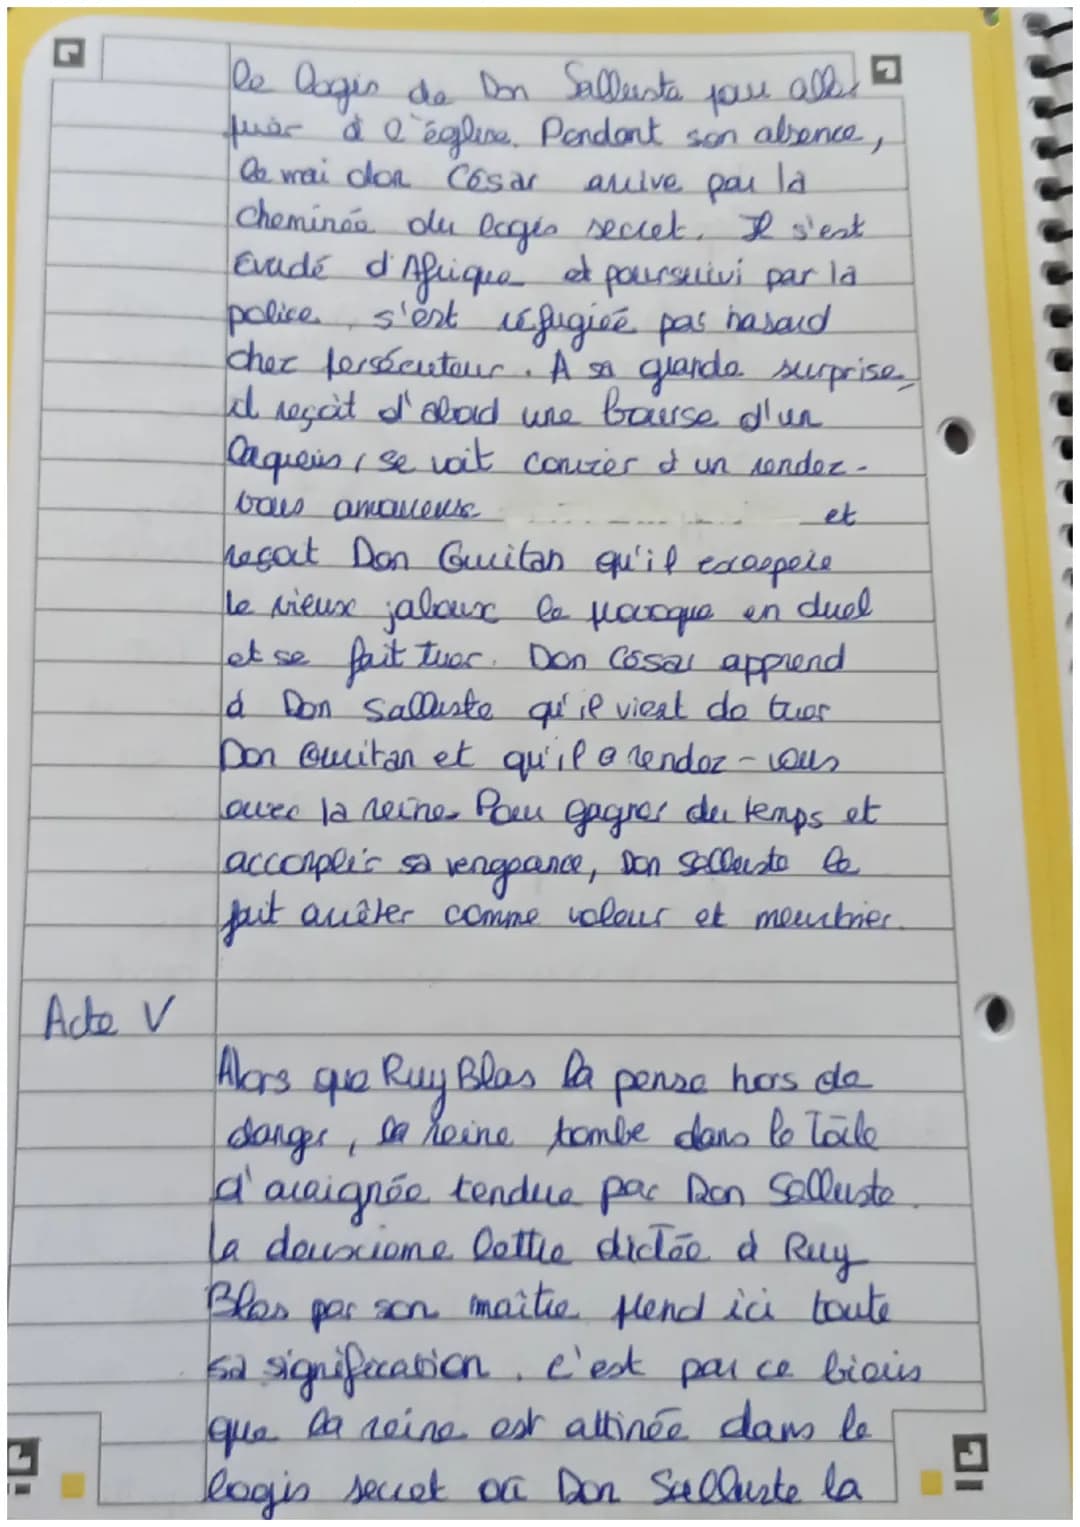 le logis de Don Salluste pour aller
prier à l'église. Pendant son absence,
le vrai don César arrive par la
cheminée du logis secret. Il s'est
évadé d'Afrique et poursuivi par la
police, s'est réfugiéé par hasard
chez persécuteur. A sa grande surprise,
il reçoit d'abord une bourse d'un
laquais, se voit convier à un rendez-
vous amoureux et
reçoit Don Guritan qu'il exaspère
le vieux jaloux le provoque en duel
et se fait tuer. Don César apprend
à Don Salluste qu'il vient de tuer
Don Guritan et qu'il a rendez-vous
avec la reine. Pour gagner du temps et
accomplir sa vengeance, Don Salluste le
fait arrêter comme voleur et meurtrier.
Acte V
Alors que Ruy Blas la pense hors de
danger, la reine tombe dans le Toile
d'araignée tendue par Don Salluste.
la deuxième lettre dictée à Ruy
Blas par son maître prend ici toute
sa signification. c'est par ce biais
que la reine est attirée dans le
logis secret où Don Salluste la